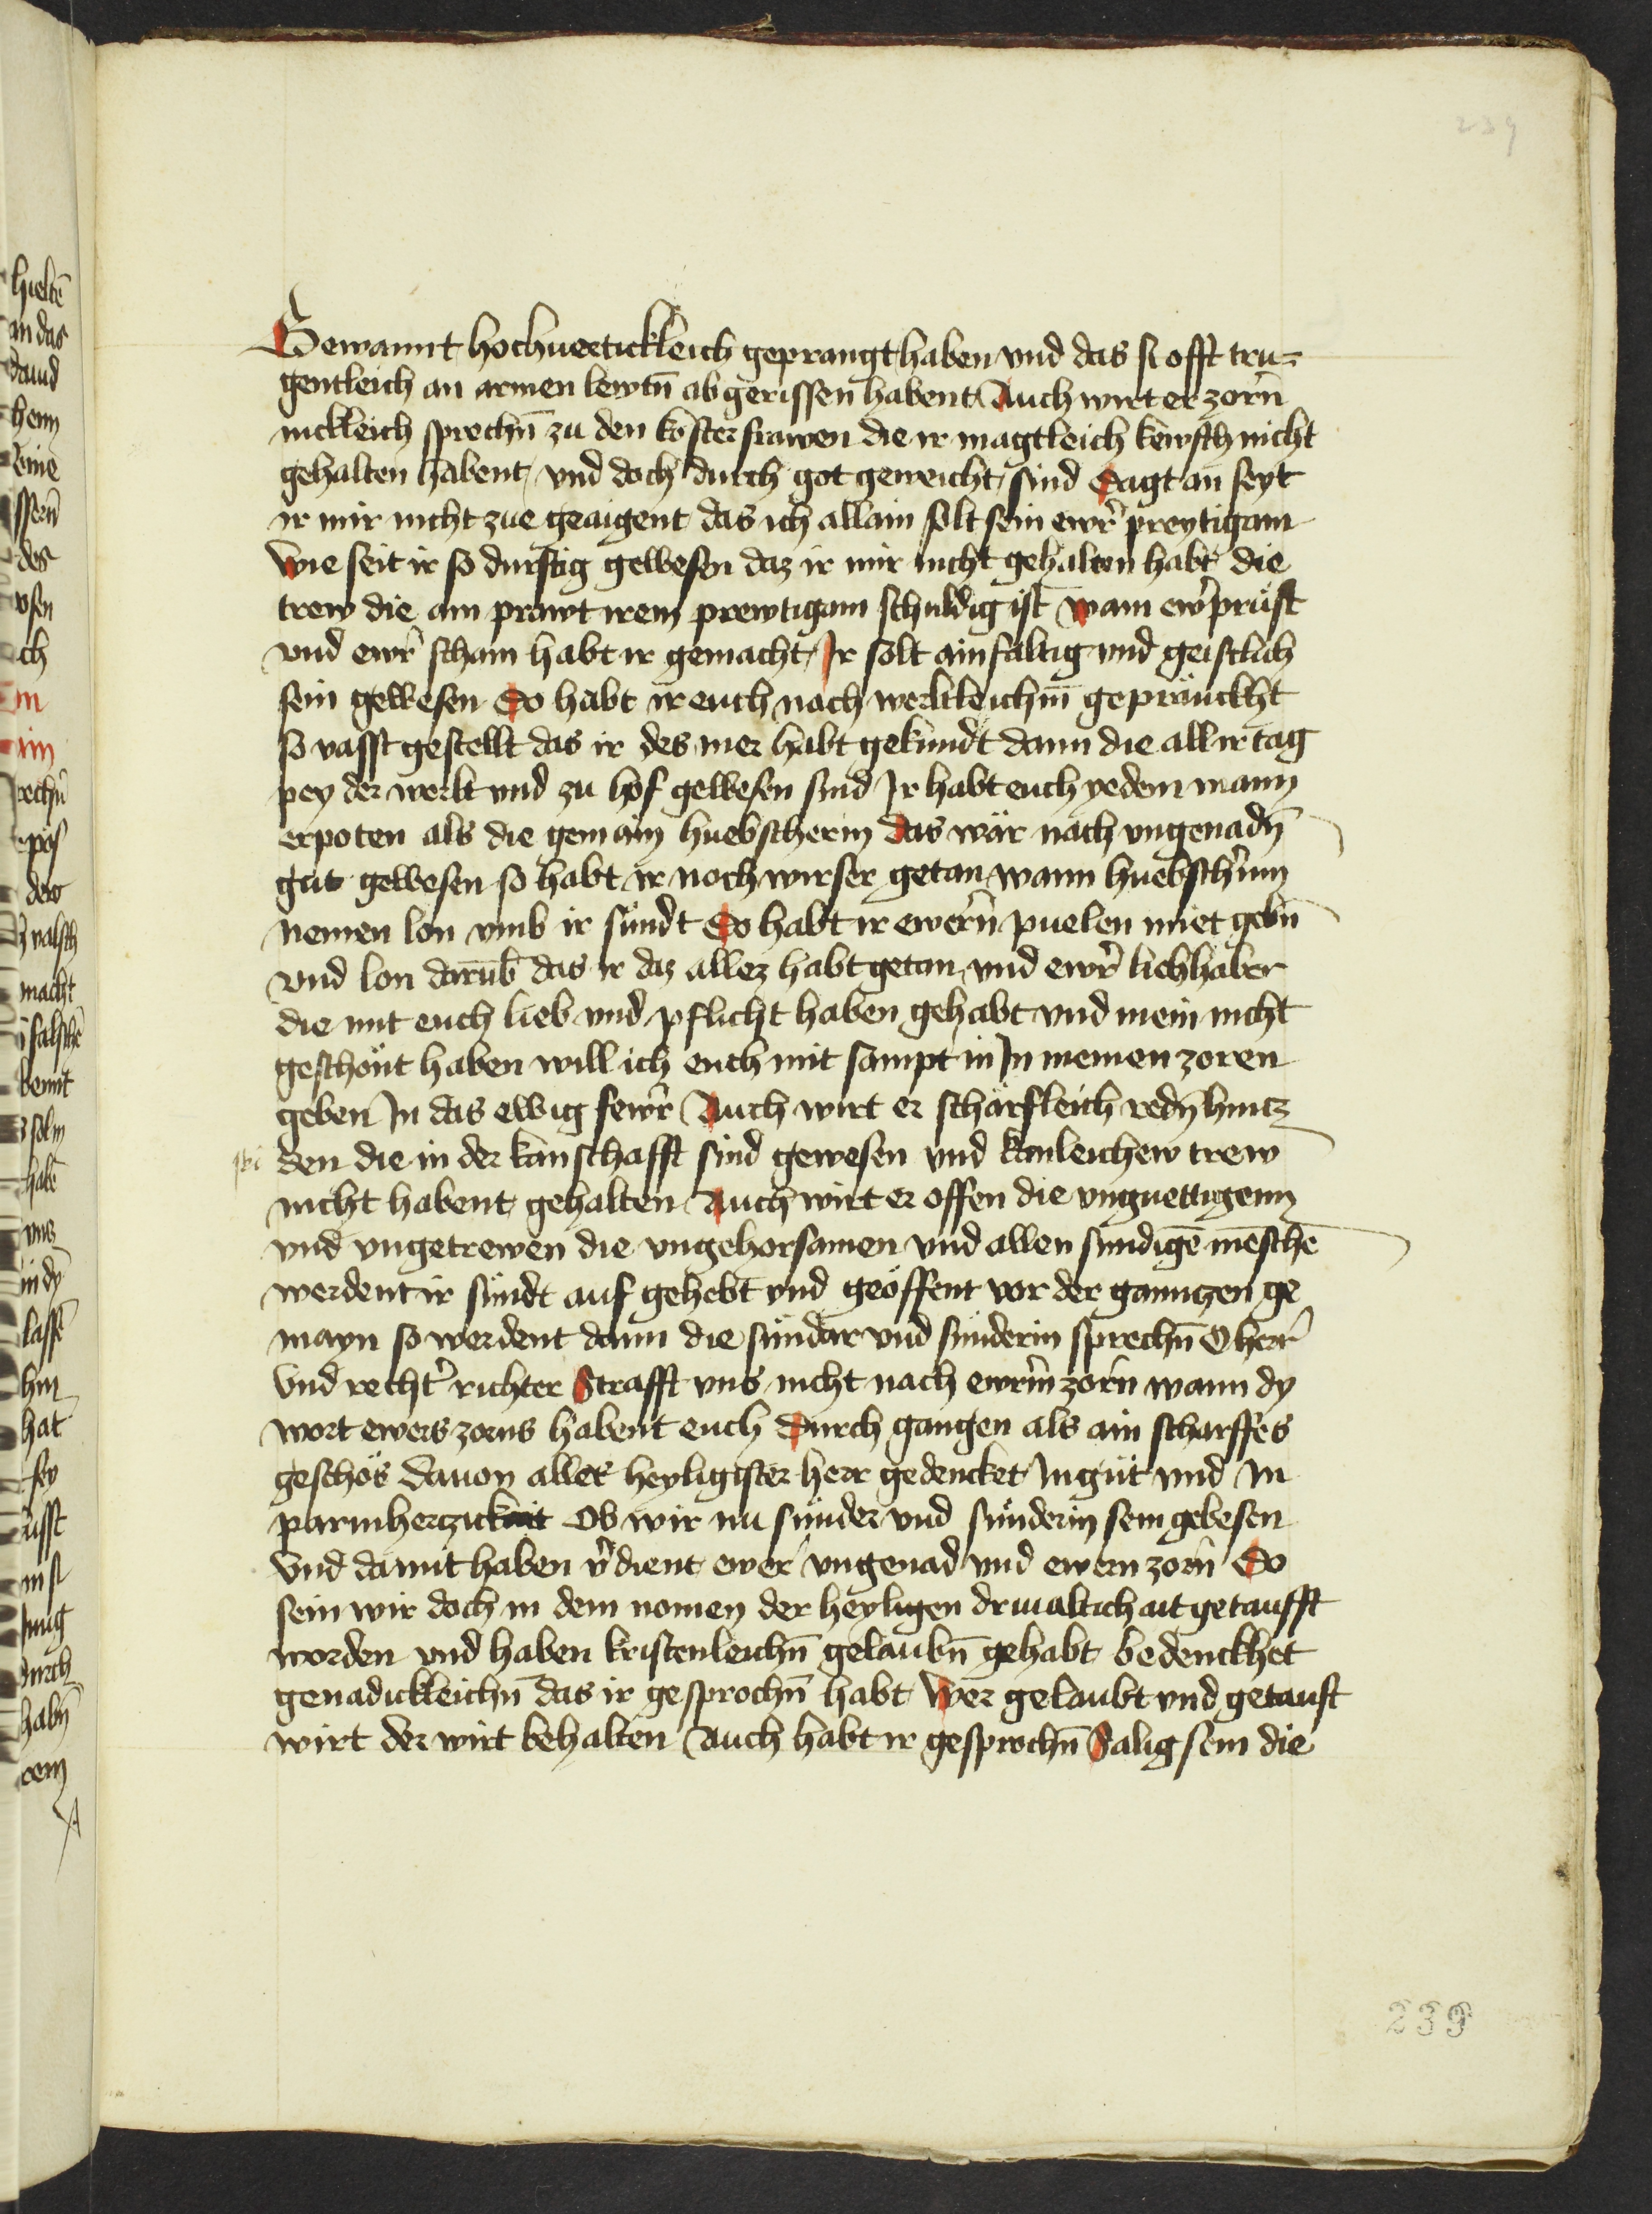 239
Gewannt hochuertickleich geprangt haben vnd das si offt tru-
gentleich an armen lewtn̄ ab gerissen habent Auch wirt er zorn̄
nickleich sprechn̄ zu den kloster frawen die ir magtleich kewsch nicht
gehalten habent vnd doch durch got geweicht sind Sagt an seyt
ir mir nicht zue geaigent das ich allain solt sein ewr̄ preytigam
Wie seit ir so durstig gewesen daz ir mir nicht gehalten habt die
trew die ain prawt irem prewtigam schuldig ist wann ewr̄ präst
vnd ewr̄ scham habt ir gemacht Ir solt ainfaltig vnd geistlich
sein gewesen So habt ir euch nach werltleichm̄ gepräuckht
so vasst gestellt das ir des mer habt gekundt dann die all ir tag
pey der werlt vnd zu hof gewesen sind Ir habt euch yedem mann
erpoten als die gemain huebscherin das wär nach vngenadn̄
gut gewesen so habt ir noch wirser getan wann huebschrinn
nemen lon vmb ir sündt So habt ir ewern̄ puelen miet gebn̄
vnd lon darūb das ir daz allez habt getan vnd ewr̄ liebhaber
die mit euch lieb vnd pflicht haben gehabt vnd mein nicht
geschönt haben will ich euch mit sampt in In meinen zoren
geben In das ewig fewr̄ Auch wirt er schärfleich redn̄ hintz
den die in der kanschafft sind gewesen vnd kanleichew trew
nicht habent gehalten Auch wirt er offen die vnguettigenn
vnd vngetrewen die vngehorsamen vnd allen sundigē mēschē
werdent ir sündt auf gehebt vnd geöffent vor der ganntzen ge
mayn so werdent dann die sündar vnd sünderin sprechn̄ O herr̄
Vnd recht̄ richter Strafft vns nicht nach ewrm̄ zorn̄ wann dy
wort ewers zorns habent euch durch gangen als ain scharffes
geschös dauon aller heyligister herr gedencket In güt vnd In
parmhertzickait Ob wir nu sünder vnd sünderin sein gebesen
Vnd damit haben v̄dient ewer vngenad vnd ewern zorn̄ So
sein wir doch in dem nomen der heyligen driualtichait getaufft
worden vnd haben kristenleichn̄ gelaubn̄ gehabt bedenckhet
genadickleichn̄ das ir gesprochn̄ habt Wer gelaubt vnd getauft
wirt der wirt behalten Auch habt ir gesprochn̄ Salig sein die
239